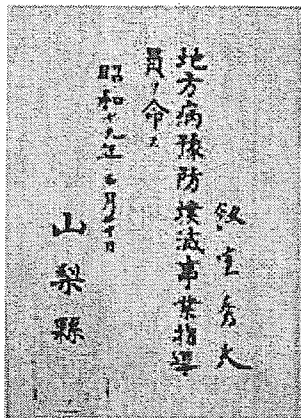 飯室秀夫
地方病豫防撲滅事業指導
員ヲ命ス
昭和十九年五月十日
山梨縣